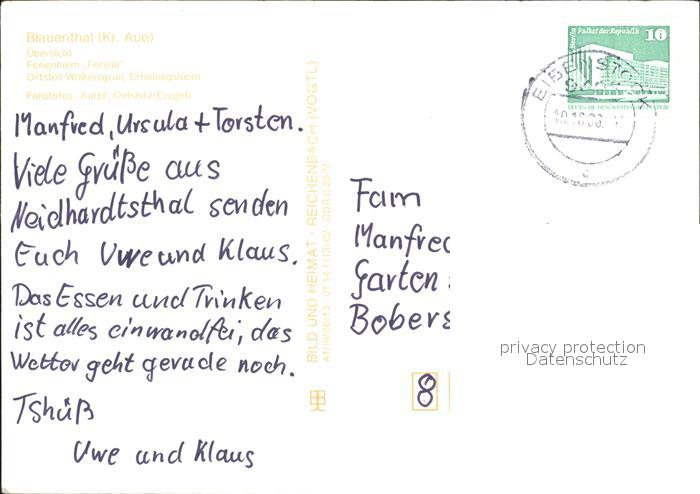 Blauenthal (Kr. Aue)
Übersicht
Ferienheim „Forelle"
Ortsteil Wolfersgrün, Erholungsheim
Farbfotos: Karpf, Oelsnitz/Erzgeb
Manfred, Ursula + Torsten.
Viele Grüße aus
Neidhardtsthal senden
Euch Uwe und Klaus.
Das Essen und Trinken
ist alles einwandfei, das
Wetter geht gerade noch.
Tshüß
Uwe und Klaus
BILD UND HEIMAT · REICHENBACH (VOGTL)
A1/IV/26/13 · 01 14 1113/C2 · DDR 0,20 M
Berlin Palast der Republik
10
DEUTSCHE DEMOKRATISCHE REPUBLIK
EIBENSTOCK
c
Fam
Manfred
Garten
Bobers
8
privacy protection
Datenschutz